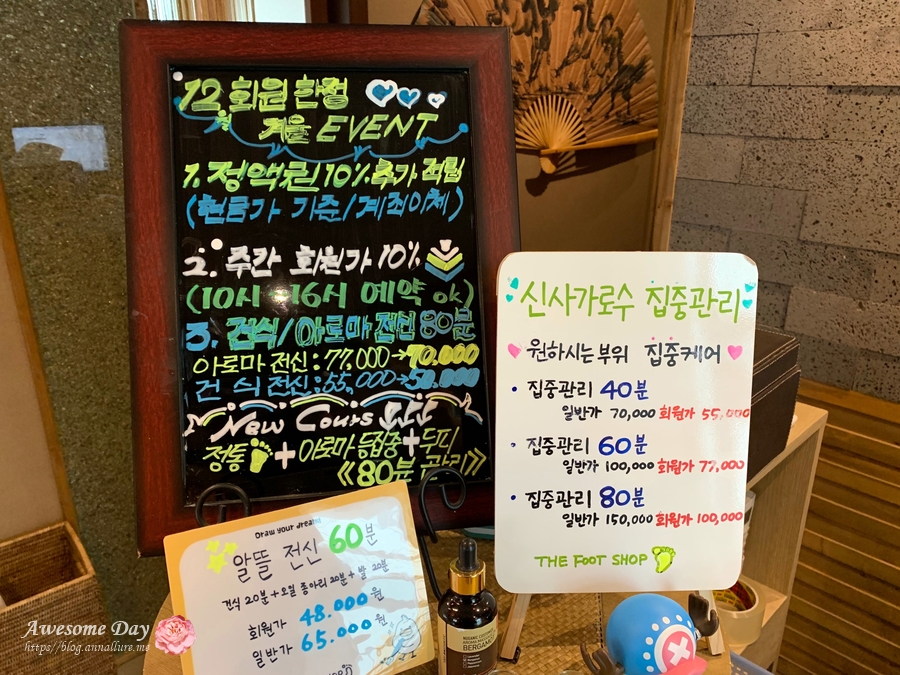 12월 회원 한정
겨울 EVENT
1. 정액권 10% 추가 적립
(현금가 기준/계좌이체)
2. 주간 회원가 10%
(10시~16시 예약 ok)
3. 건식/아로마 전신 80분
아로마 전신 : 77,000→70.000
건식전신 : 55,000→50.000
New Cours
정통 + 아로마 등집중 + 두피
《80분 관리》
신사가로수 집중관리
원하시는 부위 집중케어
• 집중관리 40분
일반가 70,000 회원가 55,000
• 집중관리 60분
일반가 100,000 회원가 77,000
• 집중관리 80분
일반가 150,000 회원가 100,000
THE FOOT SHOP
Draw your dream
알뜰 전신 60분
건식 20분 + 오일 종아리 20분 + 발 20분
회원가 48.000원
일반가 65.000원
BERGAMOT
Awesome Day
https://blog.annallure.me